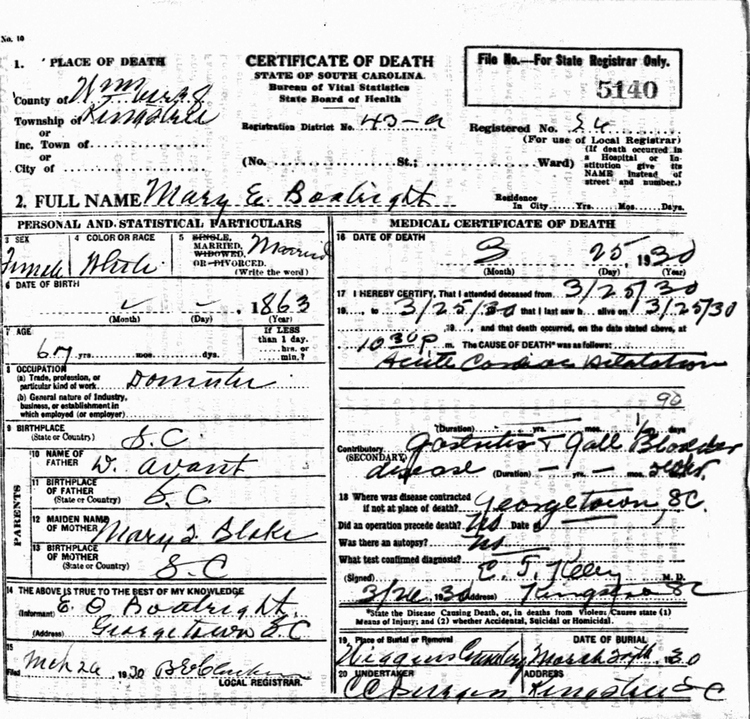 No. 10
1. PLACE OF DEATH
County of Wmsburg
Township of Kingstree
or
Inc. Town of
or
City of
CERTIFICATE OF DEATH
STATE OF SOUTH CAROLINA
Bureau of Vital Statistics
State Board of Health
File No.—For State Registrar Only.
5140
Registration District No. 43-a
Registered No. 26
(For use of Local Registrar)
(No. St.; Ward)
(If death occurred in
a Hospital or In-
stitution give its
NAME instead of
street and number.)
2. FULL NAME Mary E. Boatright
Residence
In City Yrs. Mos. Days.
PERSONAL AND STATISTICAL PARTICULARS
3 SEX
Female
4 COLOR OR RACE
White
5 SINGLE,
MARRIED,
WIDOWED,
OR DIVORCED.
(Write the word)
Married
6 DATE OF BIRTH
1863
(Month) (Day) (Year)
7 AGE
67 yrs. mos. dys.
If LESS
than 1 day.
hrs. or
min.?
8 OCCUPATION
(a) Trade, profession, or
particular kind of work
Domestic
(b) General nature of Industry,
business, or establishment in
which employed (or employer)
9 BIRTHPLACE
(State or Country)
S.C.
PARENTS
10 NAME OF
FATHER
W. Avant
11 BIRTHPLACE
OF FATHER
(State or Country)
S.C.
12 MAIDEN NAME
OF MOTHER
Mary J. Blake
13 BIRTHPLACE
OF MOTHER
(State or Country)
S.C
14 THE ABOVE IS TRUE TO THE BEST OF MY KNOWLEDGE
(Informant) E O Boatright
(Address) Georgetown S.C
15
Filed Mch 26 1930
LOCAL REGISTRAR.
MEDICAL CERTIFICATE OF DEATH
16 DATE OF DEATH
3 25, 1930
(Month) (Day) (Year)
17 I HEREBY CERTIFY, That I attended deceased from 3/25/30
19 to 3/25/30 that I last saw h alive on 3/25/30
19 and that death occurred, on the date stated above, at
10.30p m. The CAUSE OF DEATH* was as follows:
Acute Cardiac Dilatation
90
(Duration) yrs. mos. days
Contributory
(SECONDARY)
Gastritis + Gall Bladder
disease (Duration) yrs. mos.
18 Where was disease contracted
if not at place of death? Georgetown, SC.
Did an operation precede death? No Date of
Was there an autopsy? No
What test confirmed diagnosis?
(Signed) E. T. Kelley M. D.
3/26 1930 (Address) Kingstree SC
*State the Disease Causing Death, or, in deaths from Violent Causes state (1)
Means of Injury; and (2) whether Accidental, Suicidal or Homicidal.
19 Place of Burial or Removal
Wiggins Cemetery
DATE OF BURIAL
March 27th 1930
20 UNDERTAKER
C C Burgess
ADDRESS
Kingstree S C